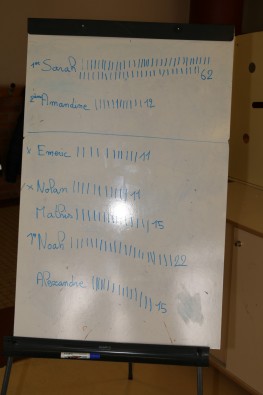 1ère Sarah 62
2ème Amandine 12
x Emeric 11
x Nolan 11
Mathis 15
1er Noah 22
Alexandre 15